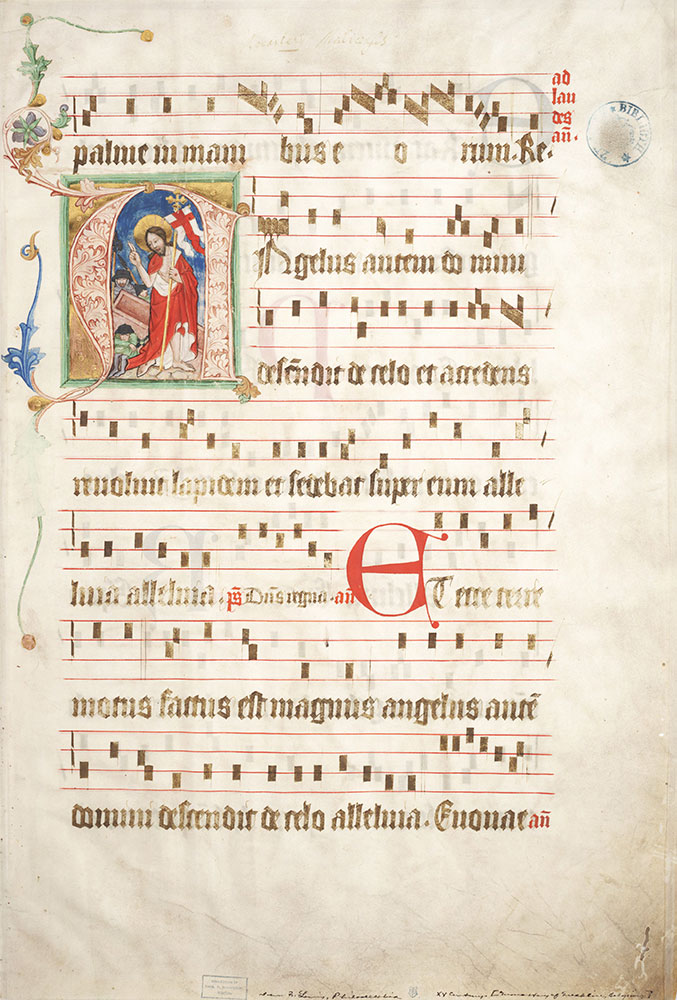 ad
lau
des
añ.
palme in mani bus e o rum. Re.
Angelus autem do mini
descēndit de celo et accedens
revolvit lapidem et sedebat super eum alle
luia alleluia. ps Dñs regna. añ ET ecce terre
motus factus est magnus angelus autē
domini descendit de celo alleluia. Euouae añ
BIBL
Philadelphia
XV Century.